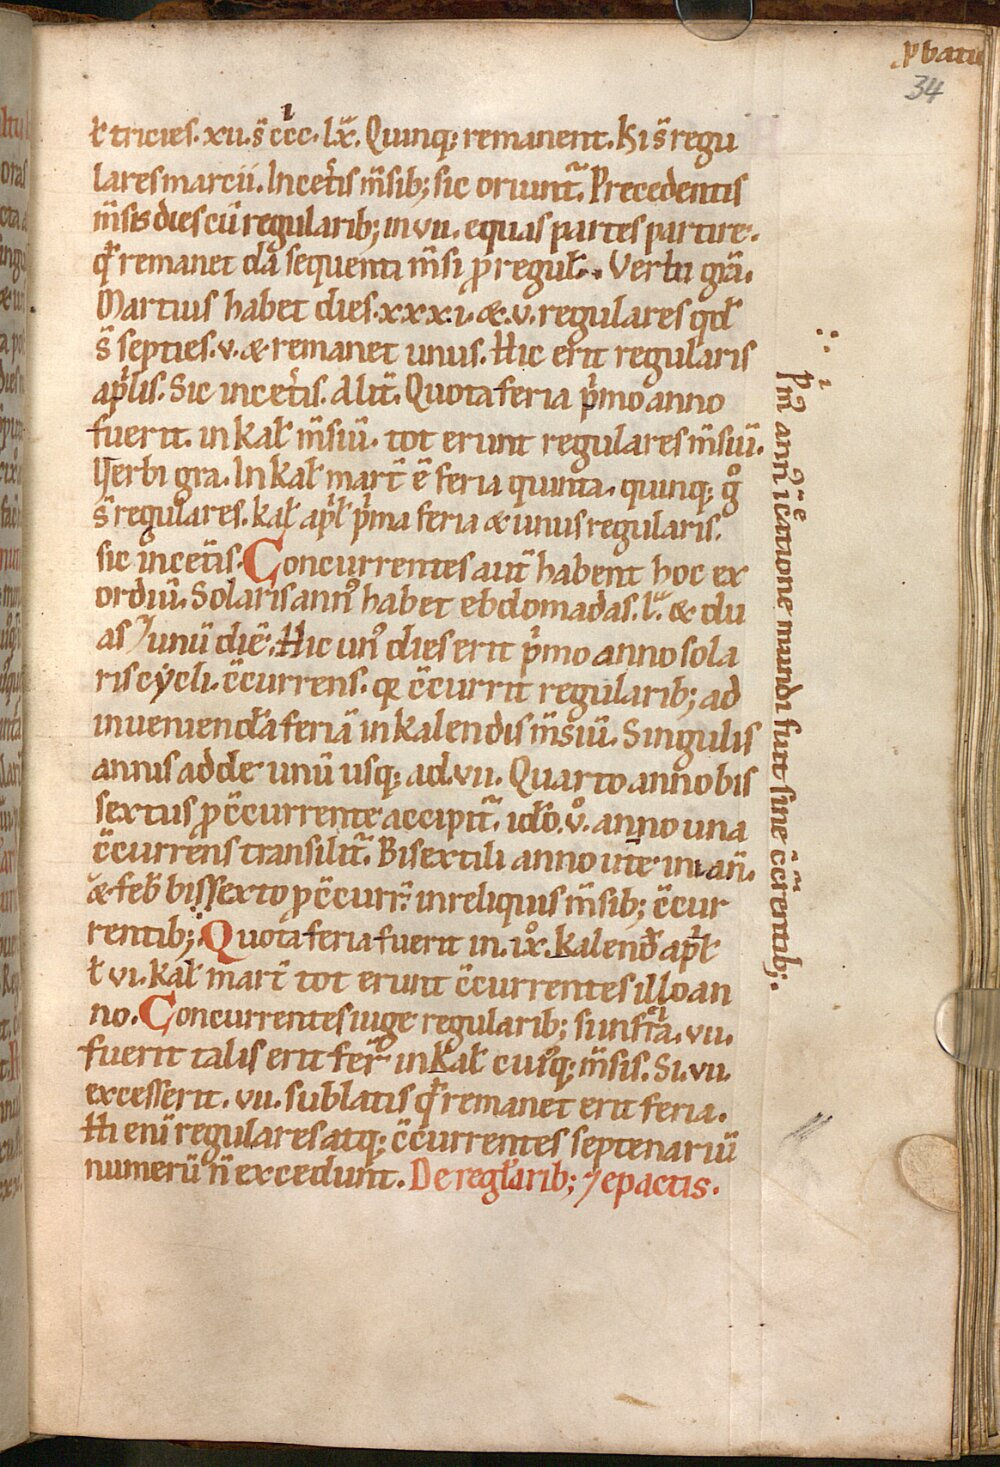 ꝑbatu
34
ł tricies. xii. s̄ ccc. lx̄. Quinq; remanent. Hi s̄ regu
lares marcii. In cet̄is m̄sib; sic oriunt̄. Precedentis
m̄sis dies cū regularib; in vii. equas partes partire.
qđ remanet da sequenti m̄si ꝓ regul̄. Verbi gr̄a.
Martius habet dies. xxxi. & .v. regulares qđ
s̄ septies. v. & remanet unus. Hic erit regularis
apͥlis. Sic in cet̄is. Alit̄. Quota feria pͥmo anno
fuerit. in kał m̄siū. tot erunt regulares m̄siū.
Verbi gra. In kał mart̄ ē feria quinta. quinq; gͦ
s̄ regulares. kał apͥł pͥma feria & unus regularis.
sic in cet̄is. Concurrentes aut̄ habent hoc ex
ordiū. Solaris annꝰ habet ebdomadas. lͥͥ. & du
as ⁊ unū diē. Hic unꝰ dies erit pͥmo anno sola
ris cycli. c̄currens. qꝛ c̄currit regularib; ad
inueniendā feriā in kalendis m̄siū. Singulis
annis adde unū usq; ad .vii. Quarto anno bis
sextus ꝓ c̄currente accipit̄. idō .vͦ. anno una
c̄currens transilit̄. Bisextili anno utē in ian̄.
& feb̄ bissexto ꝓ c̄curr̄. in reliquis m̄sib; c̄cur
rentib; Quota feria fuerit in .ix. kalend̄ apͥł
ł vi. kał mart̄ tot erunt c̄currentes illo an
no. Concurrentes iuge regularib; si infra. vii.
fuerit talis erit fer̄ in kał cuiꝰq; m̄sis. Si .vii.
excesserit. vii. sublatis qđ remanet erit feria.
Hi eni regulares atq; c̄currentes septenariū
numerū n̄ excedunt. De regłarib; ⁊ epactis.
pͥmͥ annͥ ī c̄atione mundi fuit sine c̄c̄rentib;.